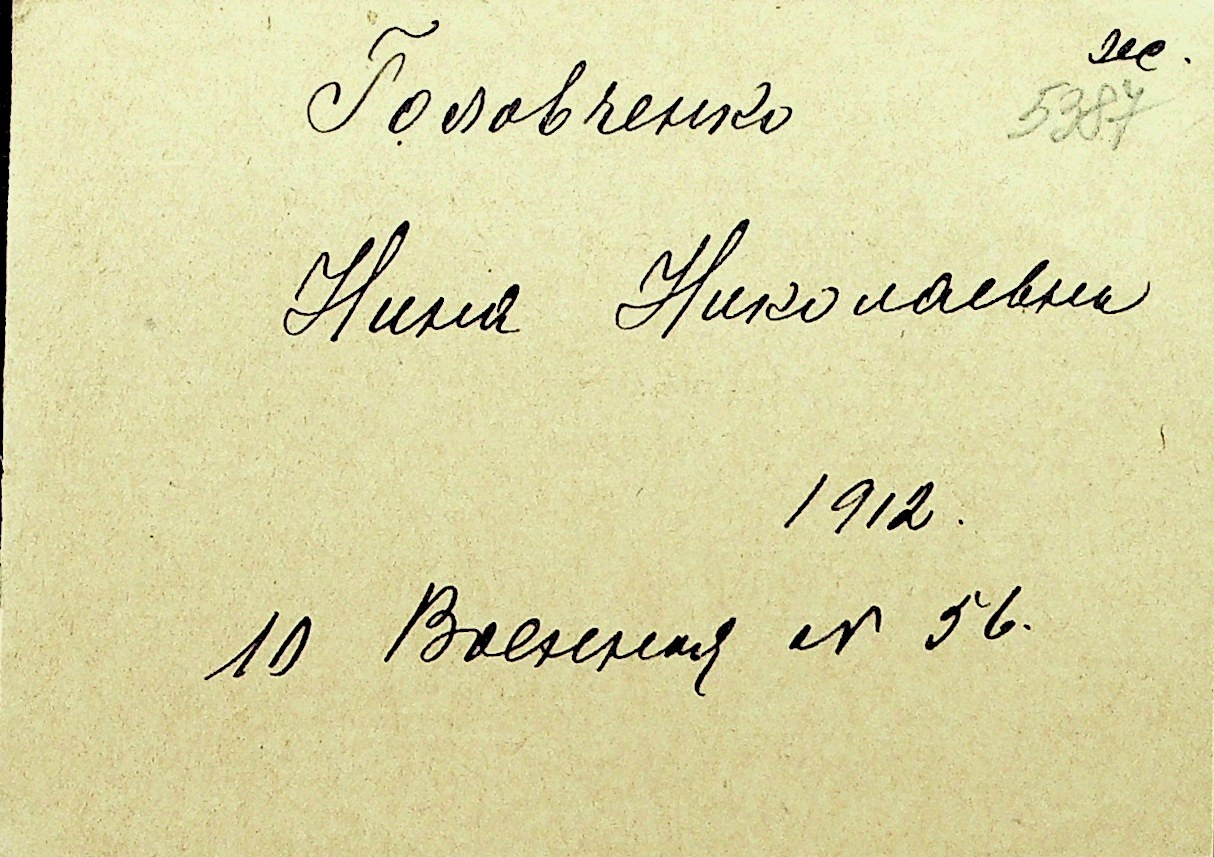 ж.
5387
Головченко
Нина Николаевна
1912.
10 Военная № 56.